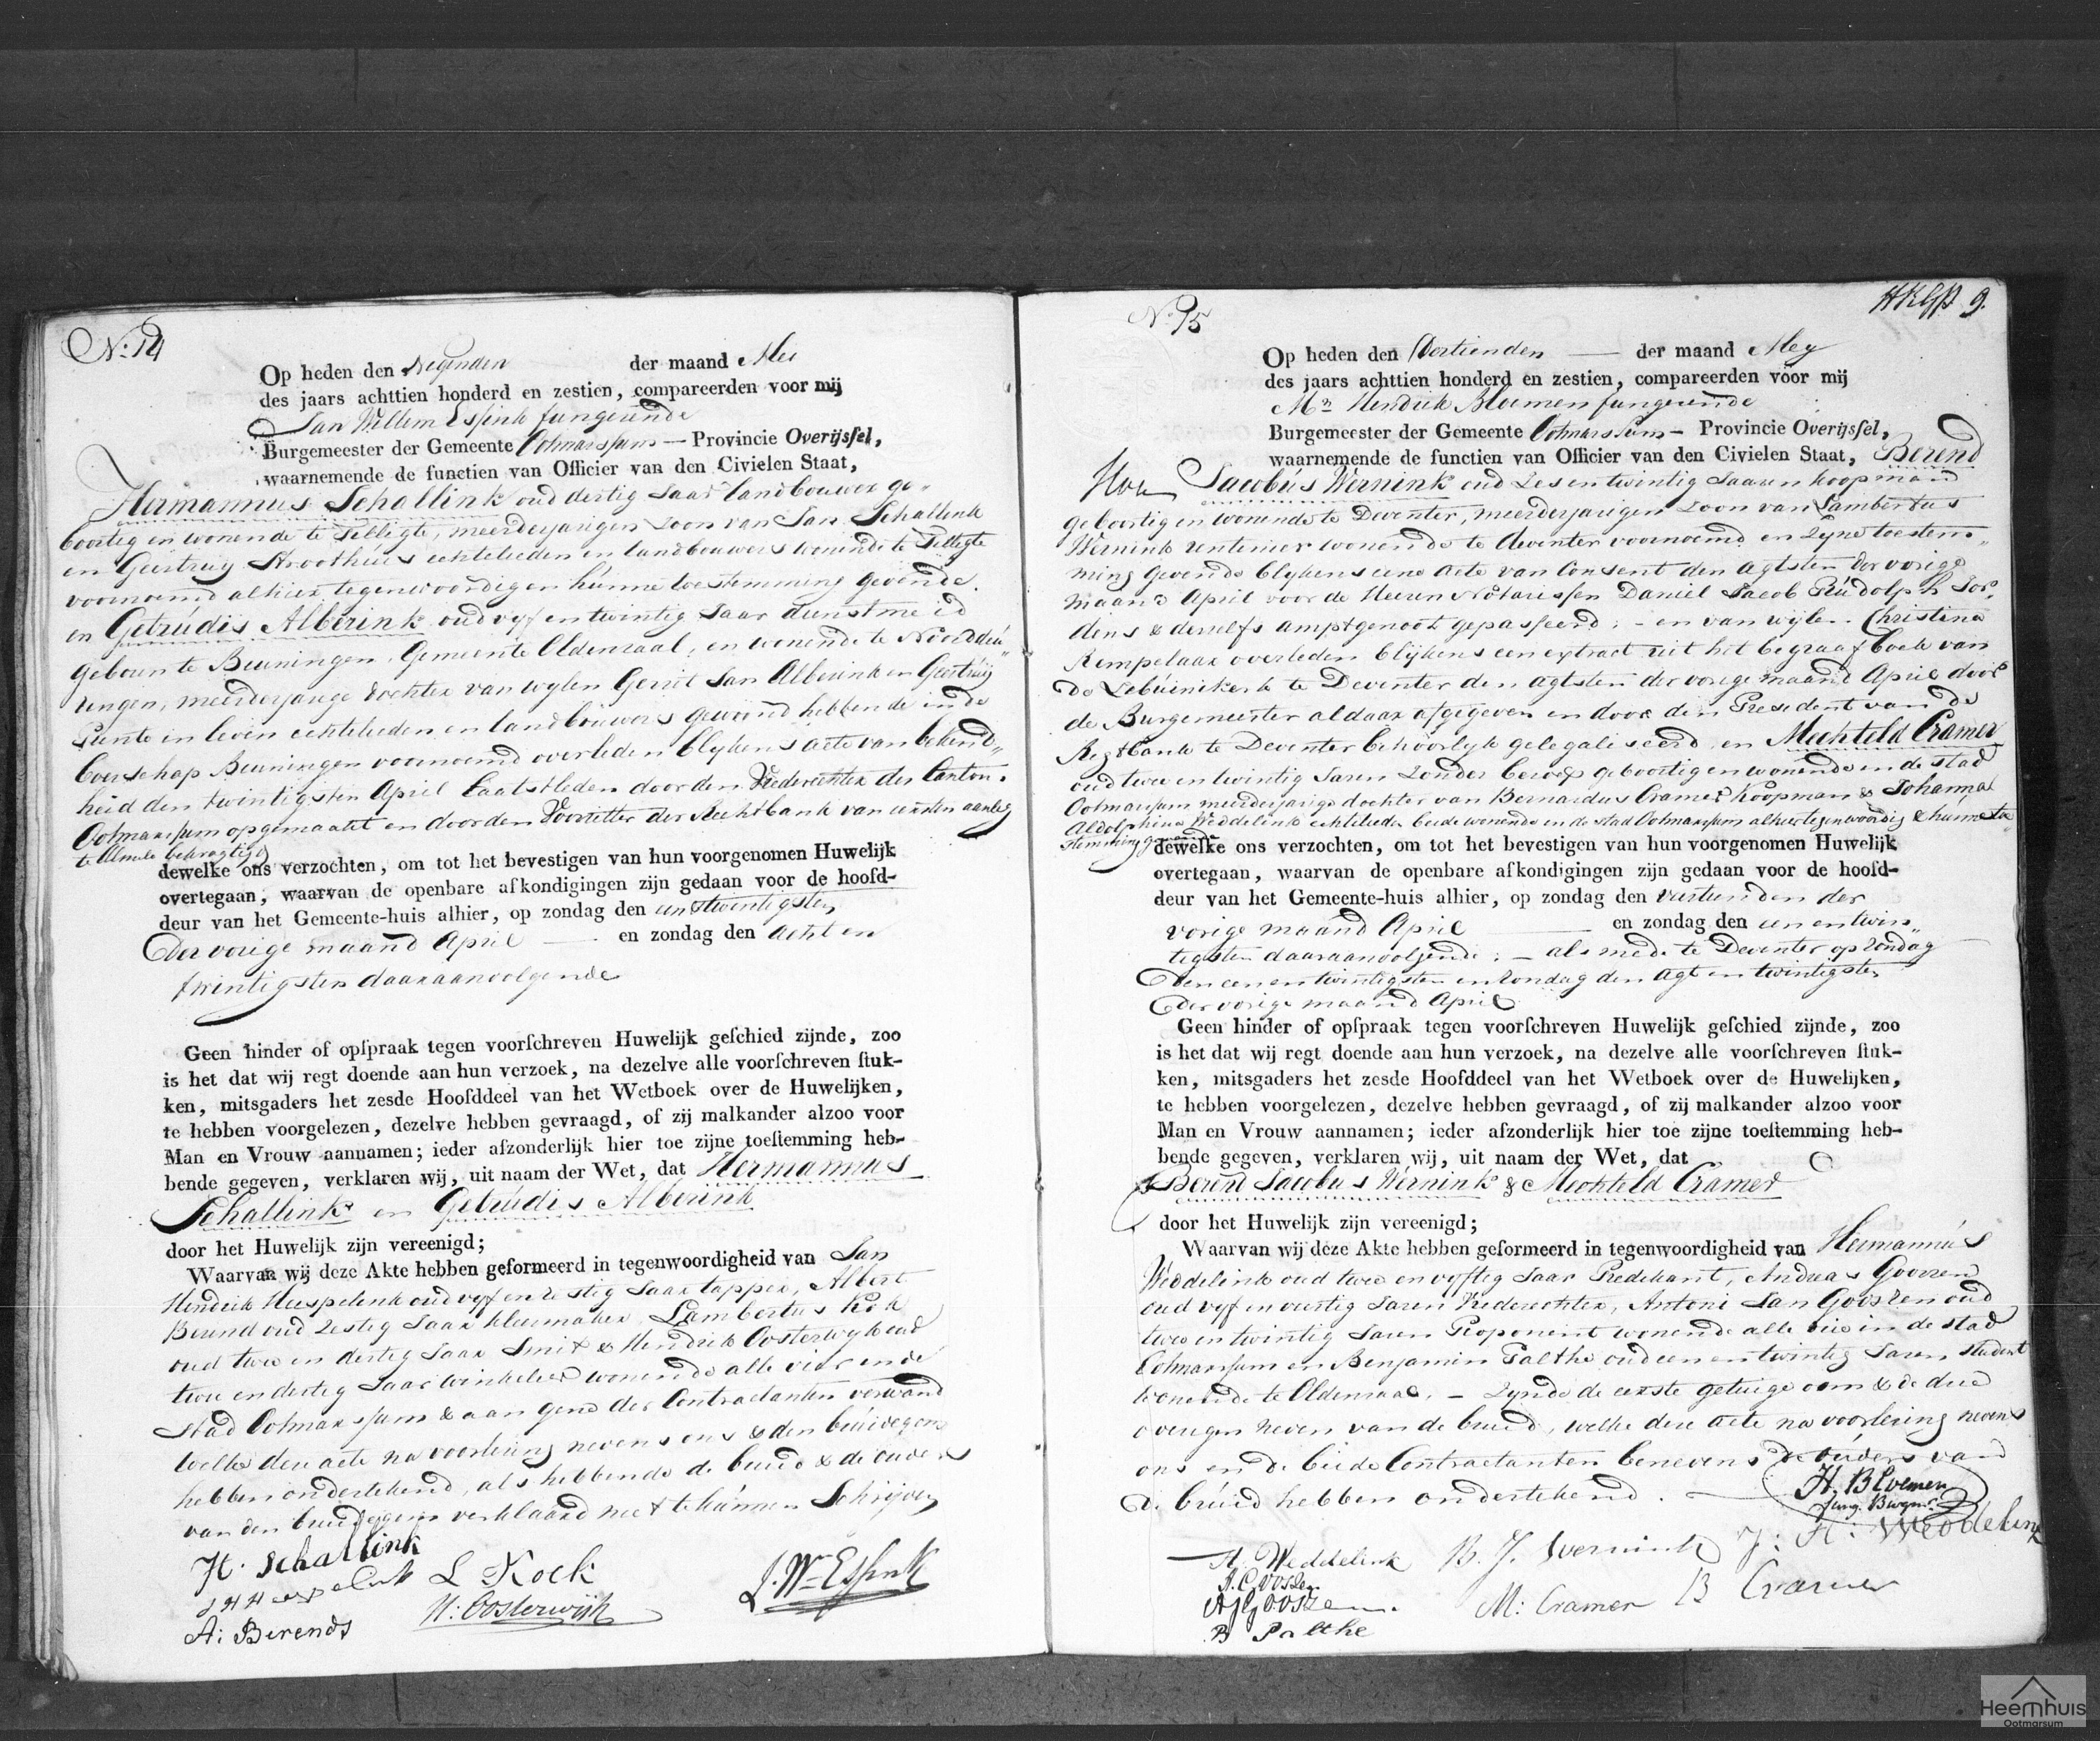 N: 14
Op heden den Negenden der maand Mei
des jaars achttien honderd en zestien, compareerden voor mij
Jan Willem Essink fungerende
Burgemeester der Gemeente Ootmarssum — Provincie Overijsſel,
waarnemende de functien van Officier van den Civielen Staat,
Hermannus Schallink oud dertig Jaar landbouwer ge„
boortig en wonende te Tilligte, meerderjarigen zoon van Jan Schallink
en Geertruy Stroothuis echtelieden en landbouwers wonende te Tilligte
voornoemd alhier tegenwoordig en hunne toestemming gevende
en Getrudis Alberink oud vyf en twintig Jaar dienstmeid
geboren te Beuningen, Gemeente Oldenzaal, en wonende te Noorddeu„
ringen, meerderjarige dochter van wylen Gerrit Jan Alberink en Geertruij
Punte in leven echtelieden en landbouwers gewoond hebbende in de
boerschap Beuningen voornoemd overleden blykens acte van bekend„
heid den twintigsten April laatstleden door den Vrederechter des Canton
Ootmarssum opgemaakt en door den Voorzitter der Rechtbank van eersten aanleg
te Almelo bekragtigd
dewelke ons verzochten, om tot het bevestigen van hun voorgenomen Huwelijk
overtegaan, waarvan de openbare afkondigingen zijn gedaan voor de hoofd-
deur van het Gemeente-huis alhier, op zondag den een & twintigsten
der vorige maand April — en zondag den acht en
twintigsten daaraanvolgende
Geen hinder of opſpraak tegen voorſchreven Huwelijk geſchied zijnde, zoo
is het dat wij regt doende aan hun verzoek, na dezelve alle voorſchreven ſtuk-
ken, mitsgaders het zesde Hoofddeel van het Wetboek over de Huwelijken,
te hebben voorgelezen, dezelve hebben gevraagd, of zij malkander alzoo voor
Man en Vrouw aannamen; ieder afzonderlijk hier toe zijne toeſtemming heb-
bende gegeven, verklaren wij, uit naam der Wet, dat Hermannus
Schallink en Getrudis Alberink
door het Huwelijk zijn vereenigd;
Waarvan wij deze Akte hebben geformeerd in tegenwoordigheid van Jan
Hendrik Heespelink oud vyf en zestig Jaar tapper, Albert
Berend oud zestig Jaar kleermaker, Lambertus Kok
oud twee en dertig Jaar Smit & Hendrik Oosterwyk oud
twee en dertig Jaar winkelier wonende alle vier in de
stad Ootmarssum & aan gene der Contractanten verwand
welke deze acte na voorlezing nevens ons & den bruidegom
hebben ondertekend, als hebbende de bruid & de ouders
van den bruidegom verklaard niet te kunnen Schrijven
H. Schallink
L Kock
J. Wm Essink
H: Oosterwijk
A: Berends
N: 15
9.
Op heden den Dertienden — der maand Mey
des jaars achttien honderd en zestien, compareerden voor mij
Mr. Hendrik Bloemen fungerende
Burgemeester der Gemeente Ootmarssum — Provincie Overijsſel,
waarnemende de functien van Officier van den Civielen Staat, Berend
Jacobus Wernink oud Zes en twintig Jaaren koopman
geboortig en wonende te Deventer, meerderjarigen zoon van Lambertus
Wernink rentenier wonende te deventer voornoemd en zyne toestem„
ming gevende blykens eene acte van Consent den agtsten der vorige
maand April voor de Heeren Notarissen Daniel Jacob Rudolph Jor„
dens & deszelfs amptgenoot gepasseerd; — en van wylen Christina
Kempelaar overleden blijkens een extract uit het begraaf boek van
de Lebuinikerk te Deventer den agtsten der vorige maand April door
de Burgemeester aldaar afgegeven en door den President van de
Regtbank te Deventer behoorlyk gelegaliseerd en Mechteld Cramer
oud twee en twintig Jaren zonder beroep geboortig en wonende in de stad
Ootmarssum meerderjarige dochter van Bernardus Cramer Koopman & Johanna
Aldolphina Weddelink echtelieden beide wonende in de stad Ootmarssum alhier tegenwoordig & hunne toe
stemming gevende
dewelke ons verzochten, om tot het bevestigen van hun voorgenomen Huwelijk
overtegaan, waarvan de openbare afkondigingen zijn gedaan voor de hoofd-
deur van het Gemeente-huis alhier, op zondag den veertienden der
vorige maand April — en zondag den een en twin„
tigsten daaraanvolgende; — als mede te Deventer op zondag
den een en twintigsten en zondag den agt en twintigsten
der vorige maand April
Geen hinder of opſpraak tegen voorſchreven Huwelijk geſchied zijnde, zoo
is het dat wij regt doende aan hun verzoek, na dezelve alle voorſchreven ſtuk-
ken, mitsgaders het zesde Hoofddeel van het Wetboek over de Huwelijken,
te hebben voorgelezen, dezelve hebben gevraagd, of zij malkander alzoo voor
Man en Vrouw aannamen; ieder afzonderlijk hier toe zijne toeſtemming heb-
bende gegeven, verklaren wij, uit naam der Wet, dat
Berend Jacobus Wernink & Mechteld Cramer
door het Huwelijk zijn vereenigd;
Waarvan wij deze Akte hebben geformeerd in tegenwoordigheid van Hermannus
Weddelink oud twee en vyftig Jaar Predikant, Andreas Goosen
oud vyf en veertig Jaren Vrederechter, Antoni Jan Goossen oud
twee en twintig Jaren Proponent wonende alle drie in de stad
Ootmarssum en Benjamin Palthe oud een en twintig Jaren student
wonende te Oldenzaal, — zynde de eerste getuige oom & de drie
overigen neven van de bruid, welke deze acte na voorlezing nevens
ons en de beide Contractanten benevens de ouders van
de bruid hebben ondertekend.
H. Bloemen
fung. Burgmr.
H. Weddelink
B. J. Wernink
J: A: Weddelink
A. Goossen
AJGoossen
M: Cramer
B Cramer
B Palthe
Heemhuis
Ootmarsum